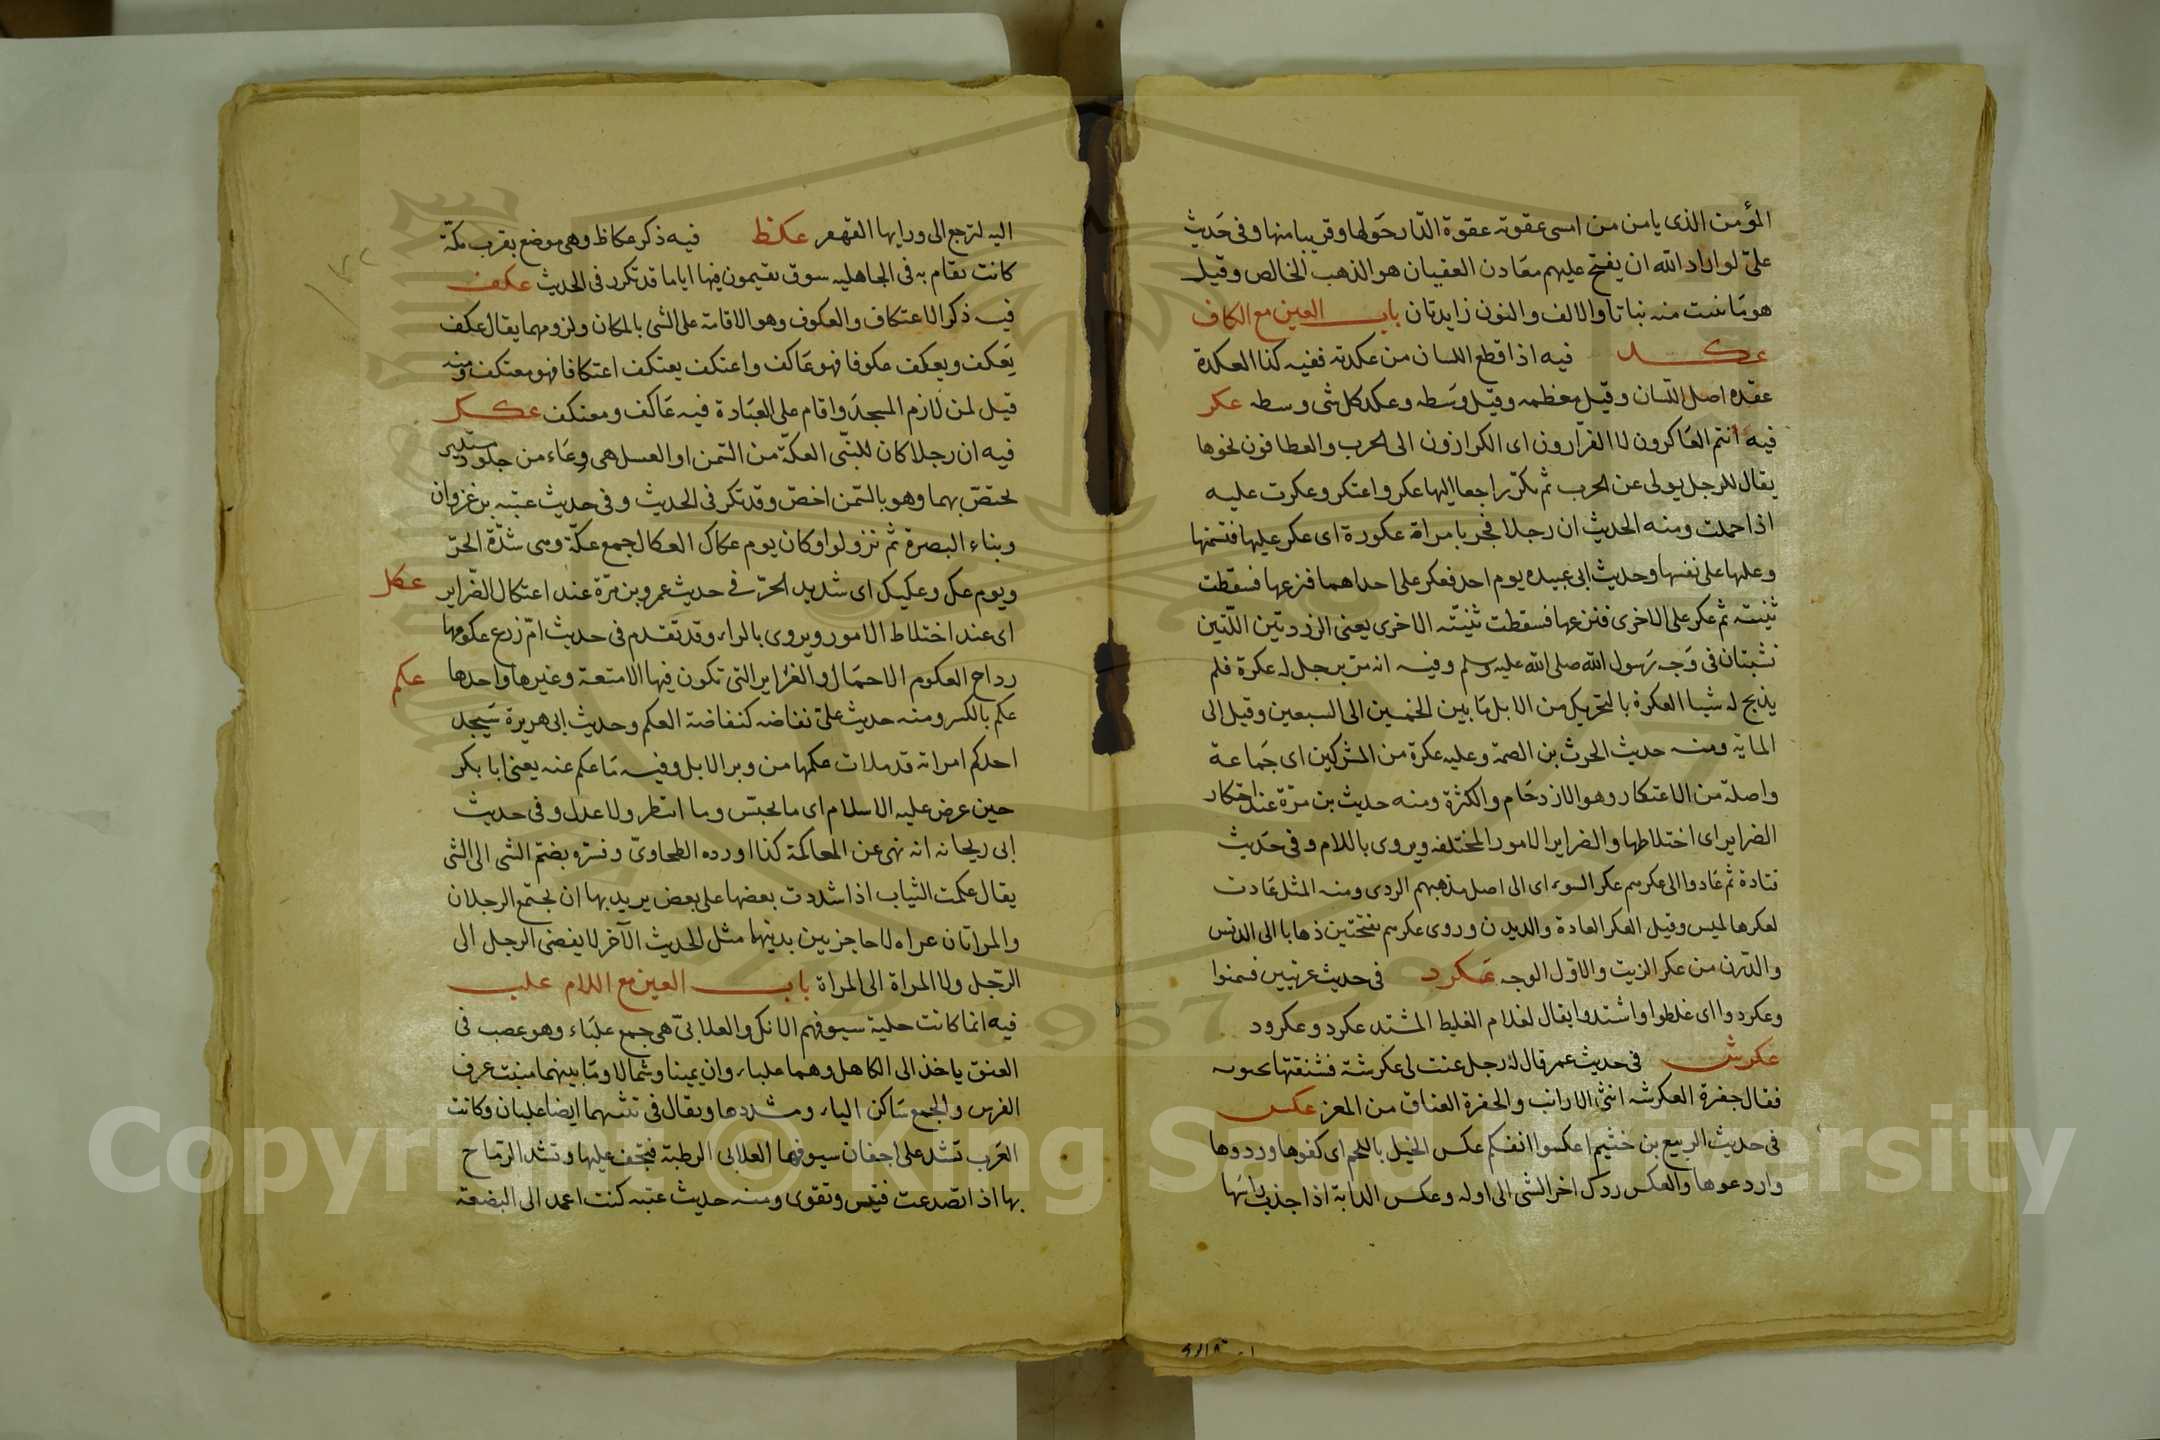 المؤمن الذى يامن من امسى عقوته عقوة الدّار حَولها وقريبا منها وفى حَديث
علىّ لو اراد الله ان يفتح عليهم معَادن العقيان هو الذهب الخالص وقيل
هو مَا ينبت منه نباتا والالف والنون زايدتان باب العين مع الكاف
عكد فيه اذا قطع اللسان من عكدته ففيه كذا العكدة
عقده اصل اللسان وقيل معظمه وقيل وسَطه وعكد كل شى وسطه عكر
فيه انتم العَاكرون لا الفرّارون اى الكرارون الى الحرب والعطافون نحوها
يقال للرجل يولى عن الحرب ثم يكرّ راجعا اليها عكر واعتكر وعكرت عليه
اذا حملت ومنه الحديث ان رجلا فجر بامراة عكورة اى عكر عليها فتسنمها
وغلبها على نفسها وحديث ابى عبيده يوم احد فعكر على احداهما فنزعها فسقطت
ثنيته ثم عكر على الاخرى فنزعها فسقطت ثنيته الاخرى يعنى الزردتين اللتين
نشبتان فى وَجه رَسول الله صلى الله عليه وسلم وفيه انه مرّ برجل له عكرة فلم
يذبح له شيا العكرة بالتحريك من الابل مَا بين الخمسين الى السبعين وقيل الى
الماية ومنه حديث الحرث بن الصمة وعليه عكرة من المشركين اى جَماعة
واصله من الاعتكار وهو الازدحَام والكثرة ومنه حديث بن مرّة عند اعتكار
الضراير اى اختلاطها والضراير الامور المختلفه ويروى باللام وفى حَديث
قتادة ثم عَادوا الى عكرهم عكر السوء اى الى اصل مذهبهم الردى ومنه المثل عَادت
لعكرها لميس وقيل العكر العادة والديدن وروى عكرهم بفتحتين ذهابا الى الدنس
والدّرن من عكر الزيت والاوّل الوجه عَكرد فى حديث عرنيين فسمنوا
وعكردوا اى غلظوا واشتدوا يقال لغلام الغليظ المشتد عكرد وعكرود
عكرش فى حديث عمر قال له رجل عنت لى عكرشة فشنقتها بحبوبه
فقال جفرة العكرشه انثى الارانب والجفرة العناق من المعز عكس
فى حديث الربيع بن خثيم اعكسوا انفسكم عكس الخيل باللجم اى كفوها وردوها
واردعوها والعكس ردك اخر الشى الى اوله وعكس الدابة اذا جذب راسَها
اليه لترجع الى ورايها القهقر عكظ فيه ذكر عكاظ وهى موضع بقرب مكّة
كانت تقام به فى الجاهليه سوق يقيمون فيها اياما قد تكرر فى الحديث عكف
فيه ذكر الاعتكاف والعكوف وهو الاقامة على الشى بالمكان ولزومهما يقال عكف
يَعكف ويعكف عكوفا فهو عَاكف واعتكف يعتكف اعتكافا فهو معتكف ومنه
قيل لمن لازم المسجدَ واقام على العبَادة فيه عَاكف ومعتكف عكك
فيه ان رجلا كان للنبّى العكّة من السّمن او العسل هى وعَاء من جلود مستدير
يختصّ بهما وهو بالسّمن اخصّ وقد تكر فى الحديث وفى حديث عتبه بن غزوان
وبناء البصرة ثم نزولوا وكان يوم عكاك العكال جمع عكّة وهى شدّة الحرّ
ويوم عك وعكيك اى شديد الحرّ فى حديث عمرو بن مرّة عند اعتكال الضّراير
عكل
اى عند اختلاط الامور ويروى بالراء وقد تقدم فى حديث امّ زرع عكومها
رداح العكوم الاحمَال والغراير التى تكون فيها الامتعة وغيرها واحدها
عكم
عكم بالكسر ومنه حديث علىّ نفاضه كنفاضة العكم وحديث ابى هريرة سَيجد
احدكم امراته قد ملات عكمها من وبر الابل وفيه مَا عكم عنه يعنى ابا بكر
حين عرض عليه الاسلام اى ما تحبّس وما انتظر ولا عدل وفى حديث
ابى ريحانه انه نهى عن المعاكمة كذا اورده الطحاوىّ وفسّره بضمّ الشى الى الشى
يقال عكمت الثياب اذا شددت بعضها على بعض يريد بها ان يجتمع الرجلان
والمراتان عراه لا حاجز بين بدنيهما مثل الحديث الآخر لا يفضى الرجل الى
الرّجل ولا المراة الى المراة باب العين مع اللام علب
فيه انما كانت حلية سيوفهم الانك والعلابىّ هى جمع علبَاء وهو عصب فى
العنق ياخذ الى الكاهل وهما علباء وان يمينا وشمالا ومَا بينهما منبت عرف
الفرس والجمع سَاكن الياء ومشددها ويقال فى تثنيهما ايضا علبان وكانت
العَرب تشد على اجفان سيوفها العلابى الرطبة فتجف عليها وتشد الرمَاح
بها اذا تصدعت فتيبس وتقوى ومنه حديث عتبه كنت اعمد الى البضعة
Copyright © King Saud University
1957